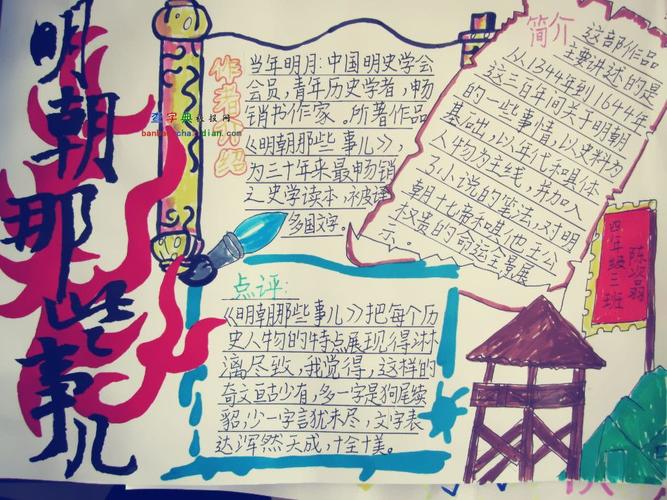 明朝那些事儿
作者介绍
当年明月:中国明史学会
会员,青年历史学者,畅
销书作家。所著作品
《明朝那些事儿》,
为三十年来最畅销
之史学读本,被译
多国文字。
简介
这部作品
主要讲述的是
从1344年到1644年
这三百年间关于明朝
的一些事情,以史料为
基础,以年代和具体
人物为主线,并加入
了小说的笔法,对明
朝十七帝和其他王公
权贵的命运全景展
示。
点评:
《明朝那些事儿》把每个历
史人物的特点展现得淋
漓尽致,我觉得,这样的
奇文亘古少有,多一字是狗尾续
貂,少一字言犹未尽,文字表
达浑然天成,十全十美。
四年级三班